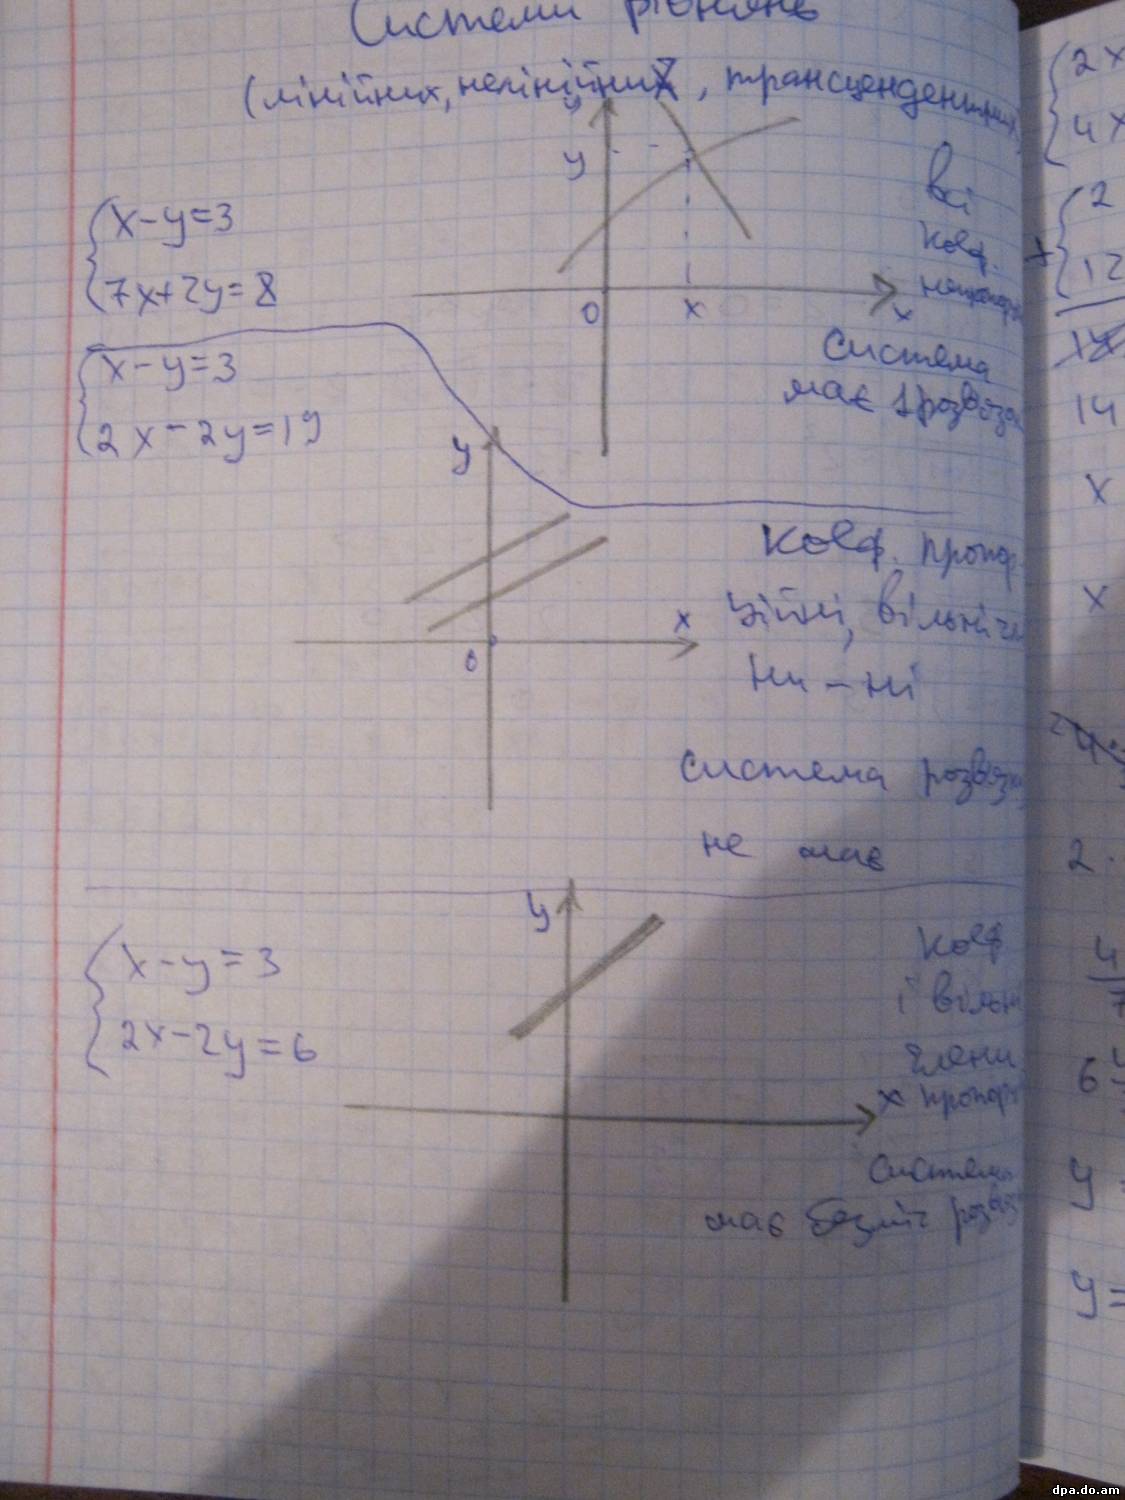 Системи рівнянь
(лінійних, нелінійних, трансцендентних)
{x-y=3
7x+2y=8
y
y
0
x
x
Всі
коеф.
Система
має 1 розв'язок
{x-y=3
2x-2y=19
y
x
0
Коеф. пропор-
ційні, вільні чле
ни - ні
система розв'язку
не має
{x-y=3
2x-2y=6
y
x
Коеф
і вільні
члени
пропорц
система
має безліч розв'яз
{2x
4x
{2
+
12
14
x
x
2.
4
7
6
y
y=
dpa.do.am